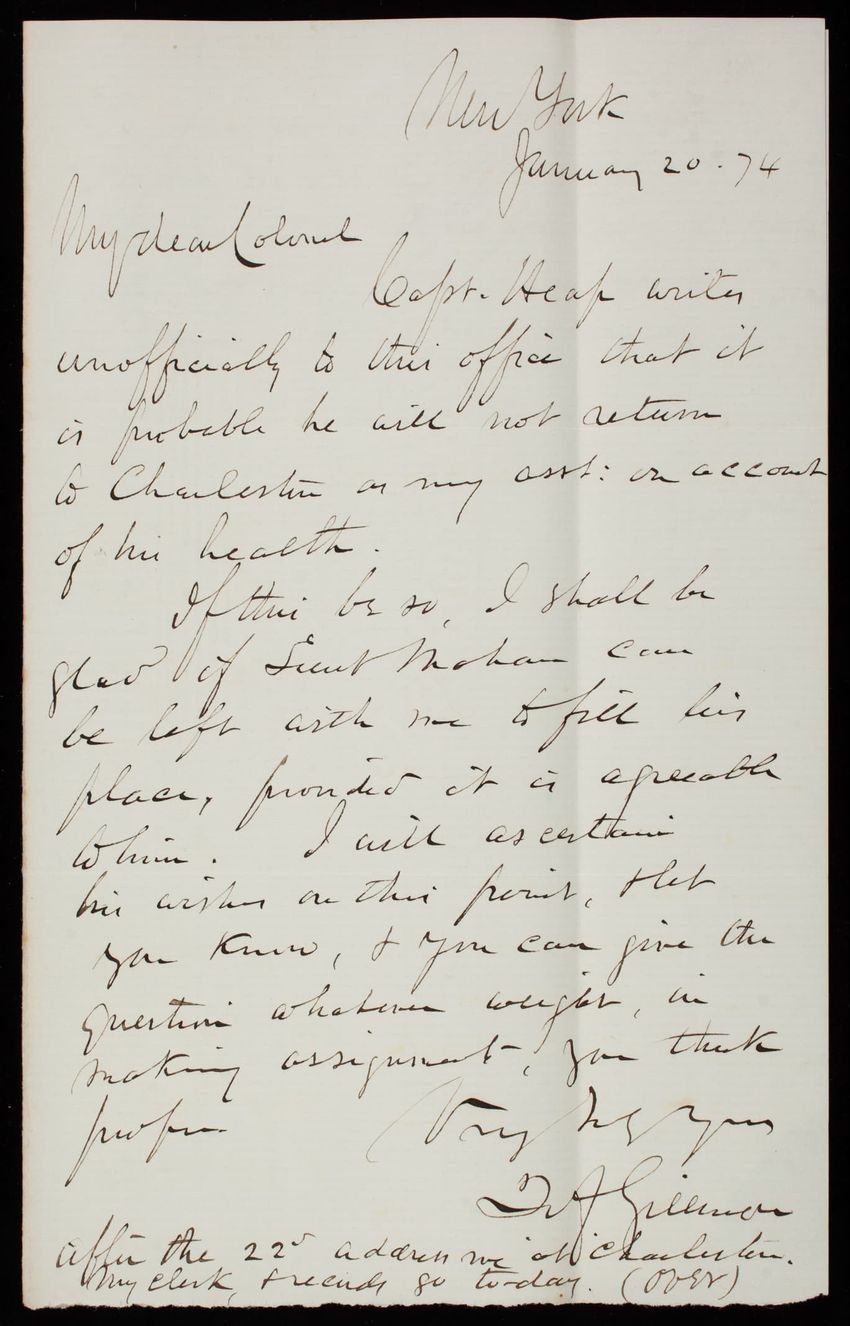 New York
January 20 - 74
My dear Colonel
Capt. Heap writes
unofficially to this office that it
is probable he will not return
to Charleston as my asst: on account
of his health.
If this be so, I shall be
glad if Lieut Mahan can
be left with me to fill his
place, provided it is agreeable
to him. I will ascertain
his wishes on this point, & let
you know, & you can give the
question whatever weight, in
making assignment, you think
proper
Very Yours
Q A Gillmore
after the 22d address me at Charleston.
My clerk, & records go to-day. (OVER)